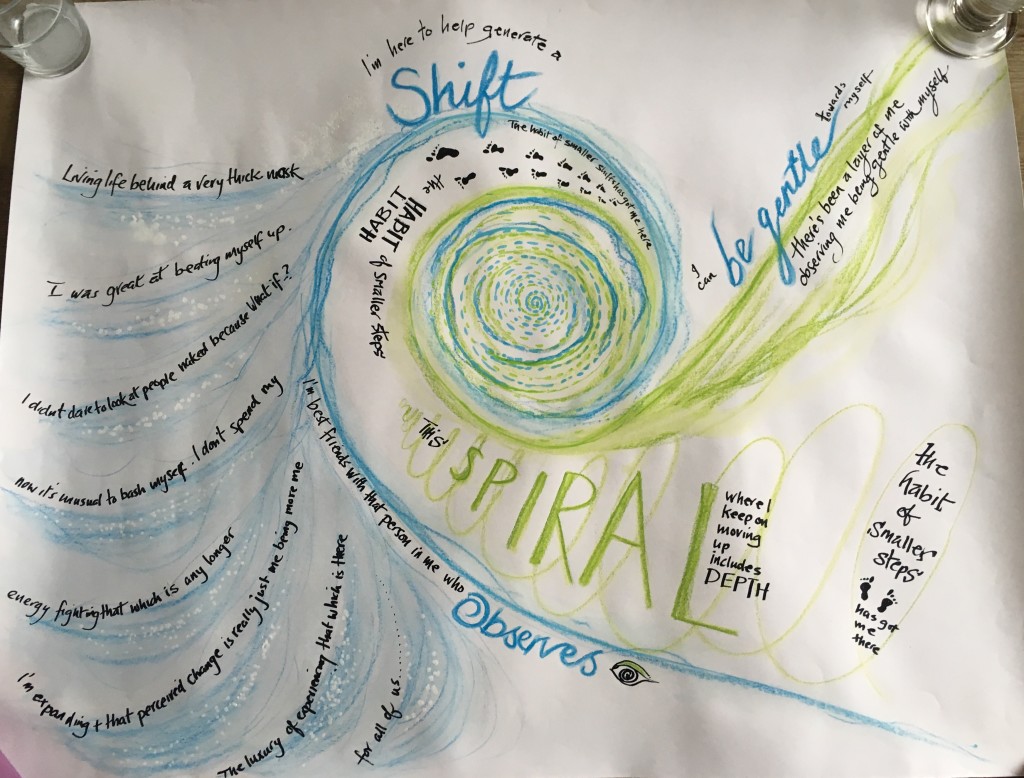 I'm here to help generate a
Shift
The habit of smaller stuff has got me here
The
HABIT
HABIT
of smaller steps
Living life behind a very thick mask
I was great at beating myself up.
I didn't dare to look at people naked because what if?
now it's unusual to bash myself. I don't spend my
energy fighting that which is any longer
I'm expanding + that perceived change is really just me being more me
The luxury of experiencing that which is there
for all of us......
I'm best friends with that person in me who
Observes
I can
be gentle
towards
myself
there's been a layer of me
observing me being gentle with myself
This
SPIRAL
where I
keep on
moving
up
includes
DEPTH
the
habit
of
smaller
steps
has got
me
there